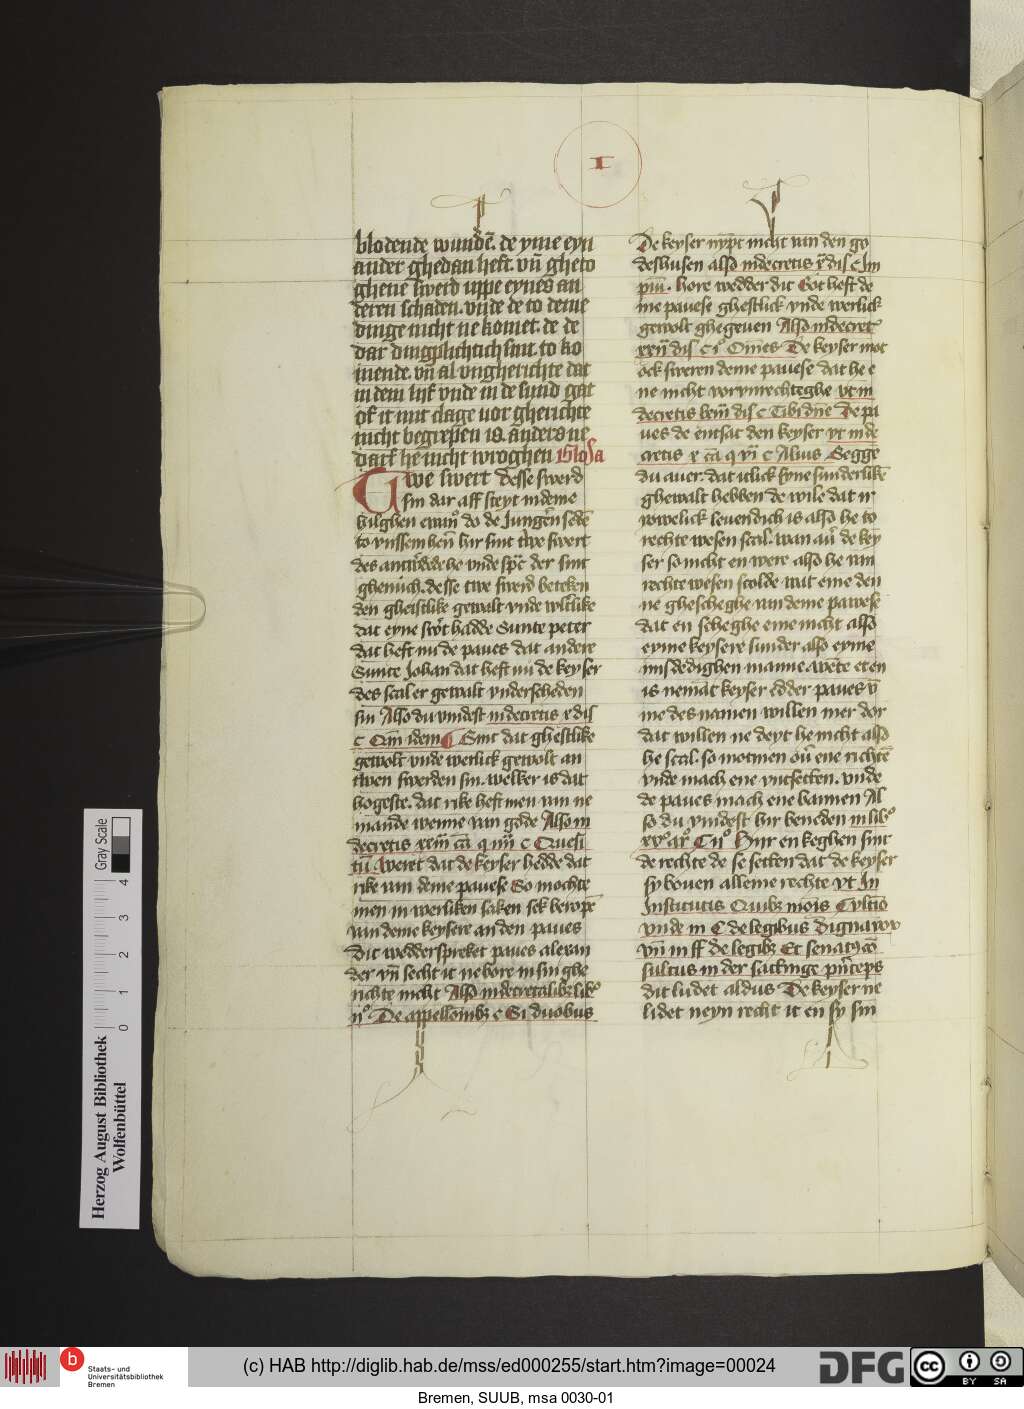 I
blodende wundē. de yme eyn
ander ghedan heft. vn̄ gheto
ghene swerd uppe eynes an
deren schaden. vnde de to deme
dinge nicht ne komet. de de
dar dingplichtich sint. to ko
mende. vn̄ al vngherichte dat
in dem lyf vnde in de sund gat
of it mit clage uor gherichte
nicht begrepen is. anders ne
darf he nicht wroghen Glosa
Twe swert desse swerd
sin dar aff steyt in deme
hilghen do de Jungern sedē
to vnssem hēn hir sint twe swert
des antwerdede he vnde der sint
ghenuch. desse twe swerd beteken
den gheistlike gewalt vnde
dat eyne hadde Sunte peter
dat heft nu de paues dat andere
Sunte Johan dat heft nu de keyser
des scal er gewalt vnderscheden
sin Also du vindest in decretis x dis
c Cum idem Sint dat ghestlike
gewolt vnde werlick gewolt an
twen swerden sin. welker is dat
hogeste. dat rike heft men van ne
mande wenne van gode Also in
decretis c Quesi
tū Weret dat de keyser hedde dat
rike van deme pauese So mochte
men in werliken saken sek beropē
van deme keysere an den paues
Dit wedderspreket paues alexan
der vn̄ secht it ne bore in sin ghe
richte nicht Also in decretalibz lib
ij° De appellōnibz c Si duobus
De keyser nypt nicht van den go
deshusen also in decretis x dis c Im
piū. hore wedder dit Got heft de
me pauese ghestlick vnde werlick
gewolt ghegeuen Also in decret
dis c j° Omēs De keyser mot
ock sweren deme pauese dat he e
ne nicht vorvnrechteghe vt in
decretis dis c Tibi dn̄e De pa
ues de entsat den keyser vt in de
cretis x q vi c Alius Segge
du auer. dat itlick syne sunderlikē
ghewalt hebben de wile dat
lick leuendich is also he to
rechte wesen scal. wan de key
ser so nicht en were also he van
rechte wesen scolde wat eme den
ne ghescheghe van deme pawese
dat en scheghe eme nicht also
eyme keysere sunder also eyme
misdedighen manne. wēte et en
is nemāt keyser edder paues
me des namen willen mer dor
dat willen ne deyt he nicht also
he scal. so motmen ene richtē
vnde mach ene vntsetten. vnde
de paues mach ene bannen Al
so du vindest hir beneden in lib°
xv° ar° C ij° Hir en keghen sint
de rechte de se setten dat de keyser
sy bouen alleme rechte vt In
Institutis Quibz mōis
vnde in C de legibus Digna vox
vn̄ in ff de legibz Et senatus cō
sultus in der sattinge prīceps
dit ludet aldus De keyser ne
lidet neyn recht it en sy sin
Herzog August Bibliothek
Wolfenbüttel
0 1 2 3 4
Gray Scale
b
Staats- und
Universitätsbibliothek
Bremen
(c) HAB http://diglib.hab.de/mss/ed000255/start.htm?image=00024
DFG
cc BY SA
Bremen, SUUB, msa 0030-01